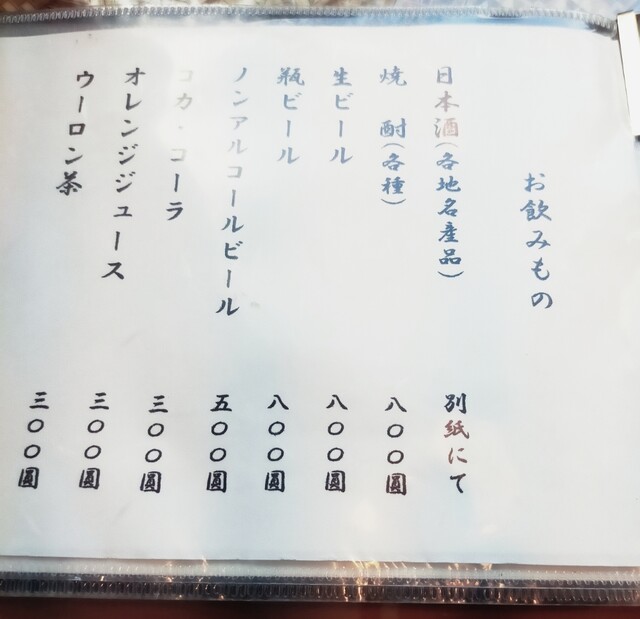 お飲みもの
日本酒(各地名産品) 別紙にて
焼 酎(各種) 八〇〇圓
生ビール 八〇〇圓
瓶ビール 八〇〇圓
ノンアルコールビール 五〇〇圓
コカ・コーラ 三〇〇圓
オレンジジュース 三〇〇圓
ウーロン茶 三〇〇圓